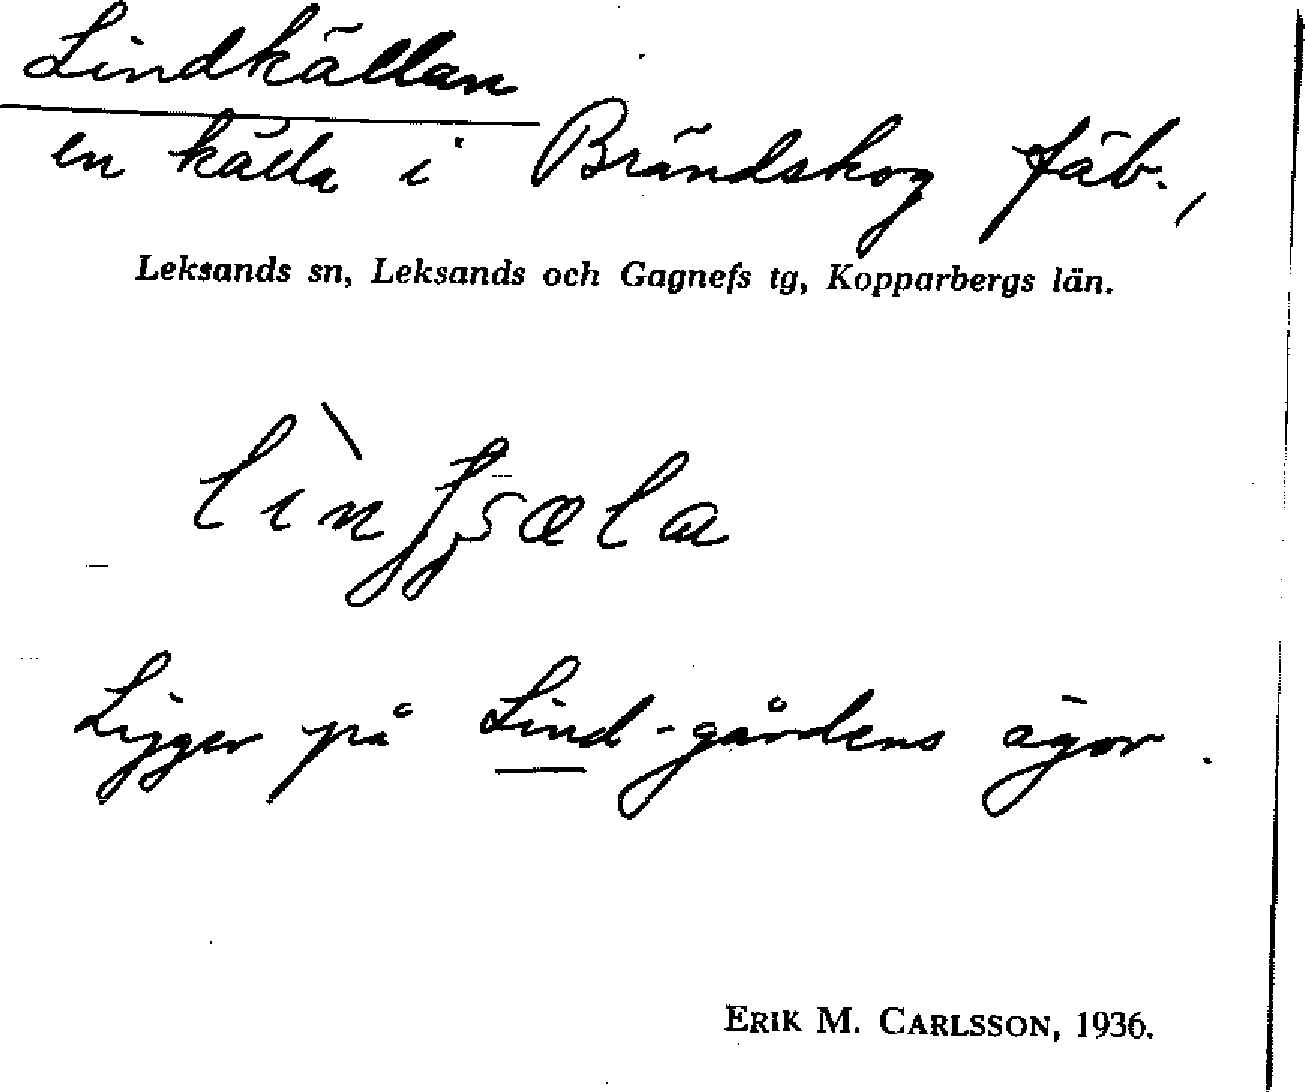 Lindkällan
en källa i Brändskog fäb.,
Leksands sn, Leksands och Gagnefs tg, Kopparbergs län.
Ligger på Lind-gårdens ägor.
ERIK M. CARLSSON, 1936.